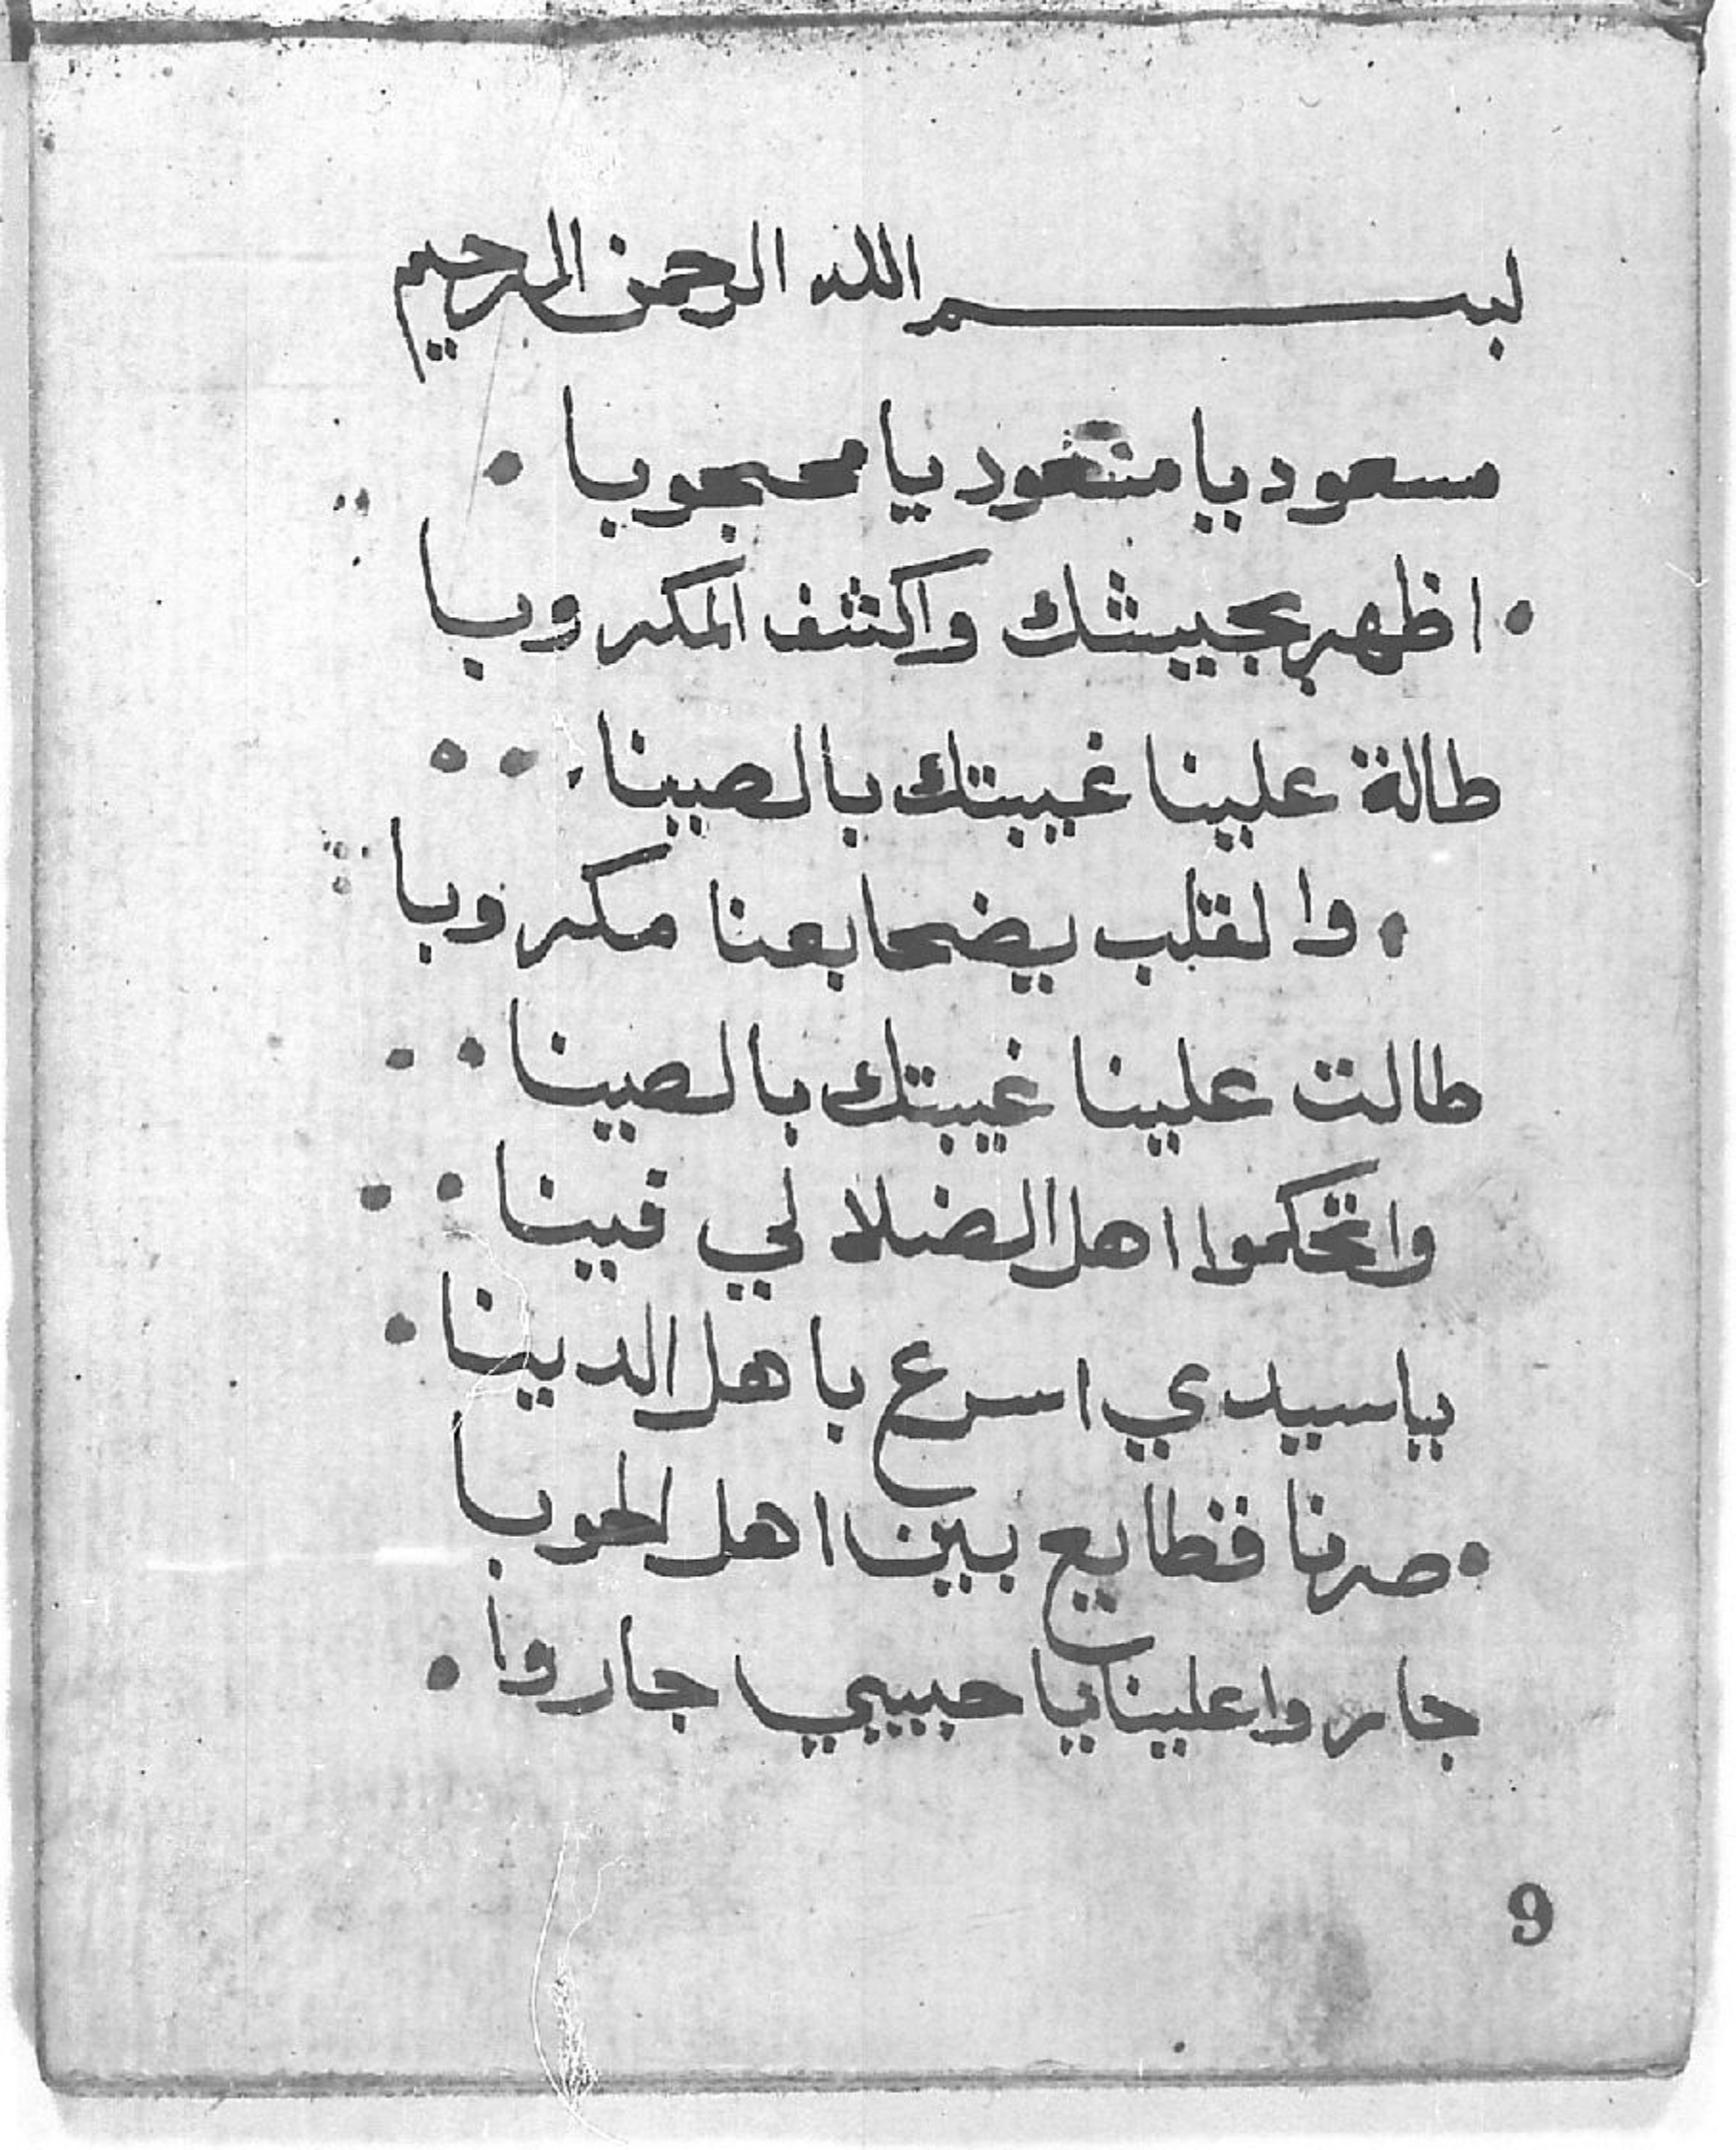 بسم الله الرحمن الرحيم
مسعود يا منتعود يا محجوبا
اظهر بجييشك واكشف المكروبا
طالة علينا غيبتك بالصينا
والقلب يضحا بعنا مكروبا
طالت علينا غيبتك بالصينا
واتحكموا اهل الضلا لي فيينا
يا سيدي اسرع باهل الدينا
صرنا فظايع بين اهل الحوبا
جاروا علينا يا حبيبي جاروا
9